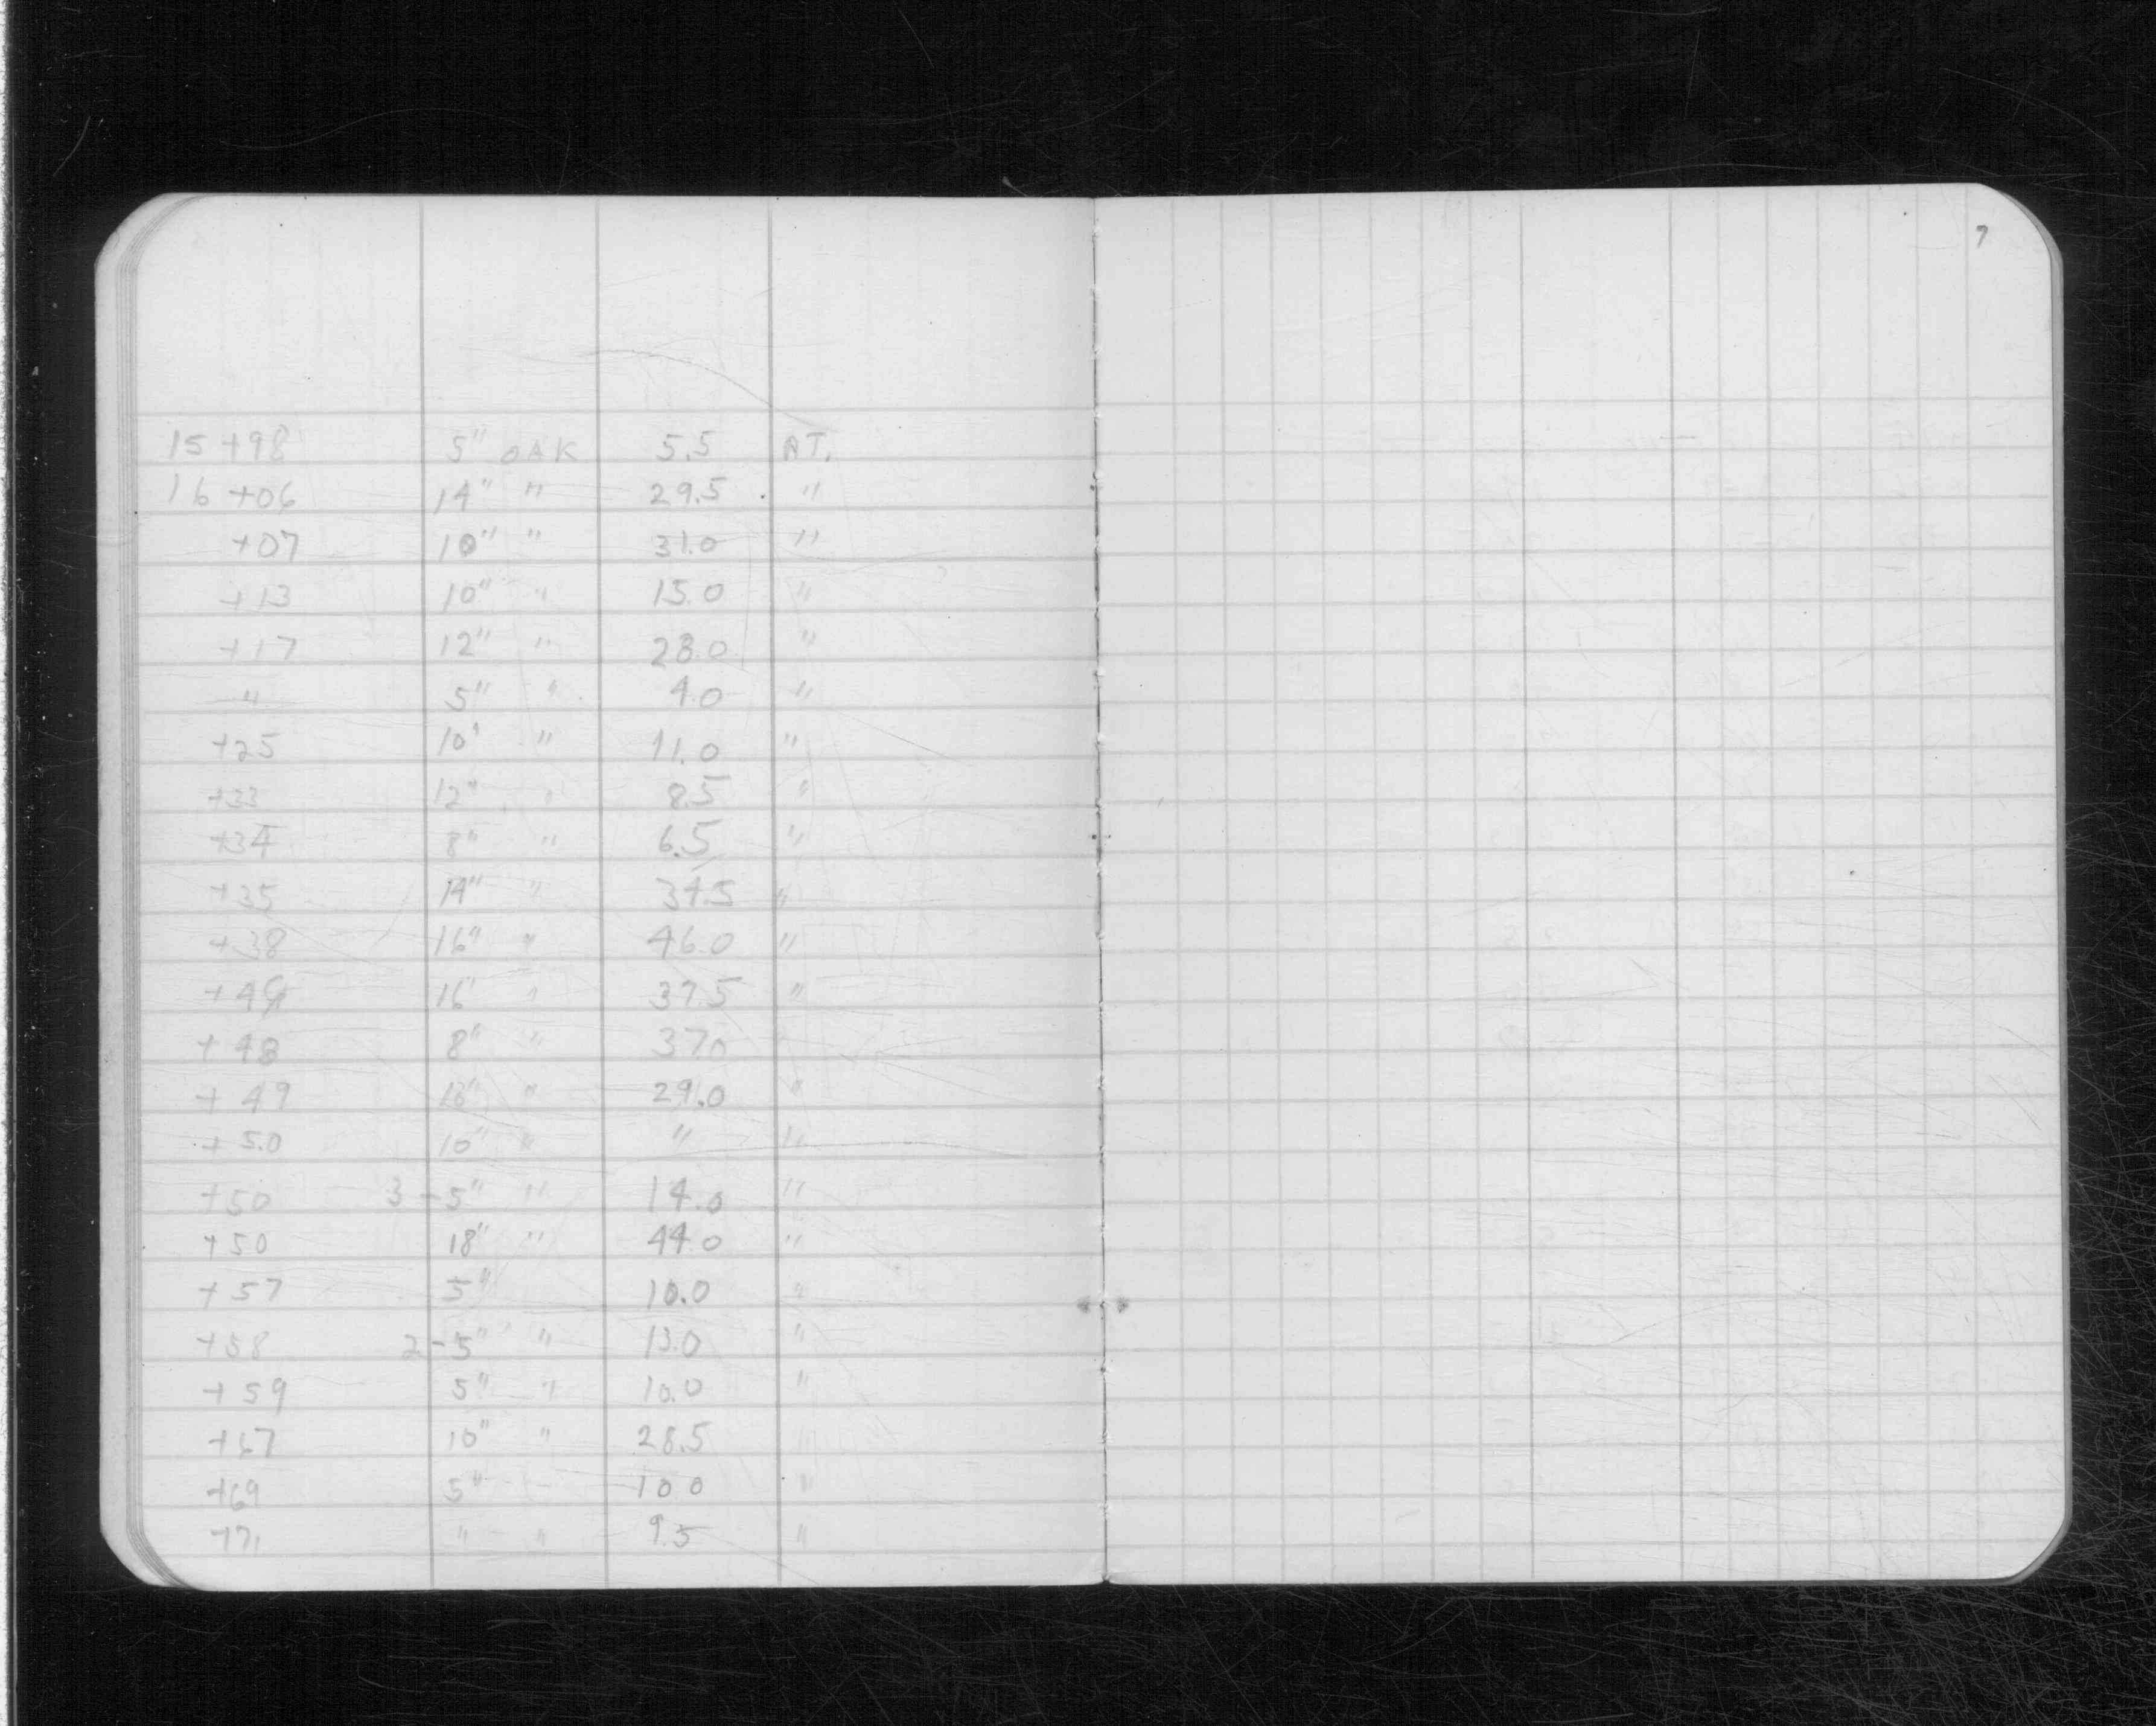 7
15 +98 5" OAK 5.5 RT.
16 +06 14" " 29.5 "
+07 10" " 31.0 "
+13 10" " 15.0 "
+17 12" " 28.0 "
" 5" " 4.0 "
+25 10" " 11.0 "
+33 12" " 8.5 "
+34 8" " 6.5 "
+35 14" " 34.5 "
+38 16" " 46.0 "
16" " "
+48 8" " 37.0
+49 " 29.0 "
+50 10" " " "
+50 3-5" " 14.0 "
+50 18" " 44.0 "
+57 5" 10.0 "
+58 2-5" " 13.0 "
+59 5" " 10.0 "
+67 10" " 28.5 "
+69 5" " 10.0 "
+71 " " 9.5 "